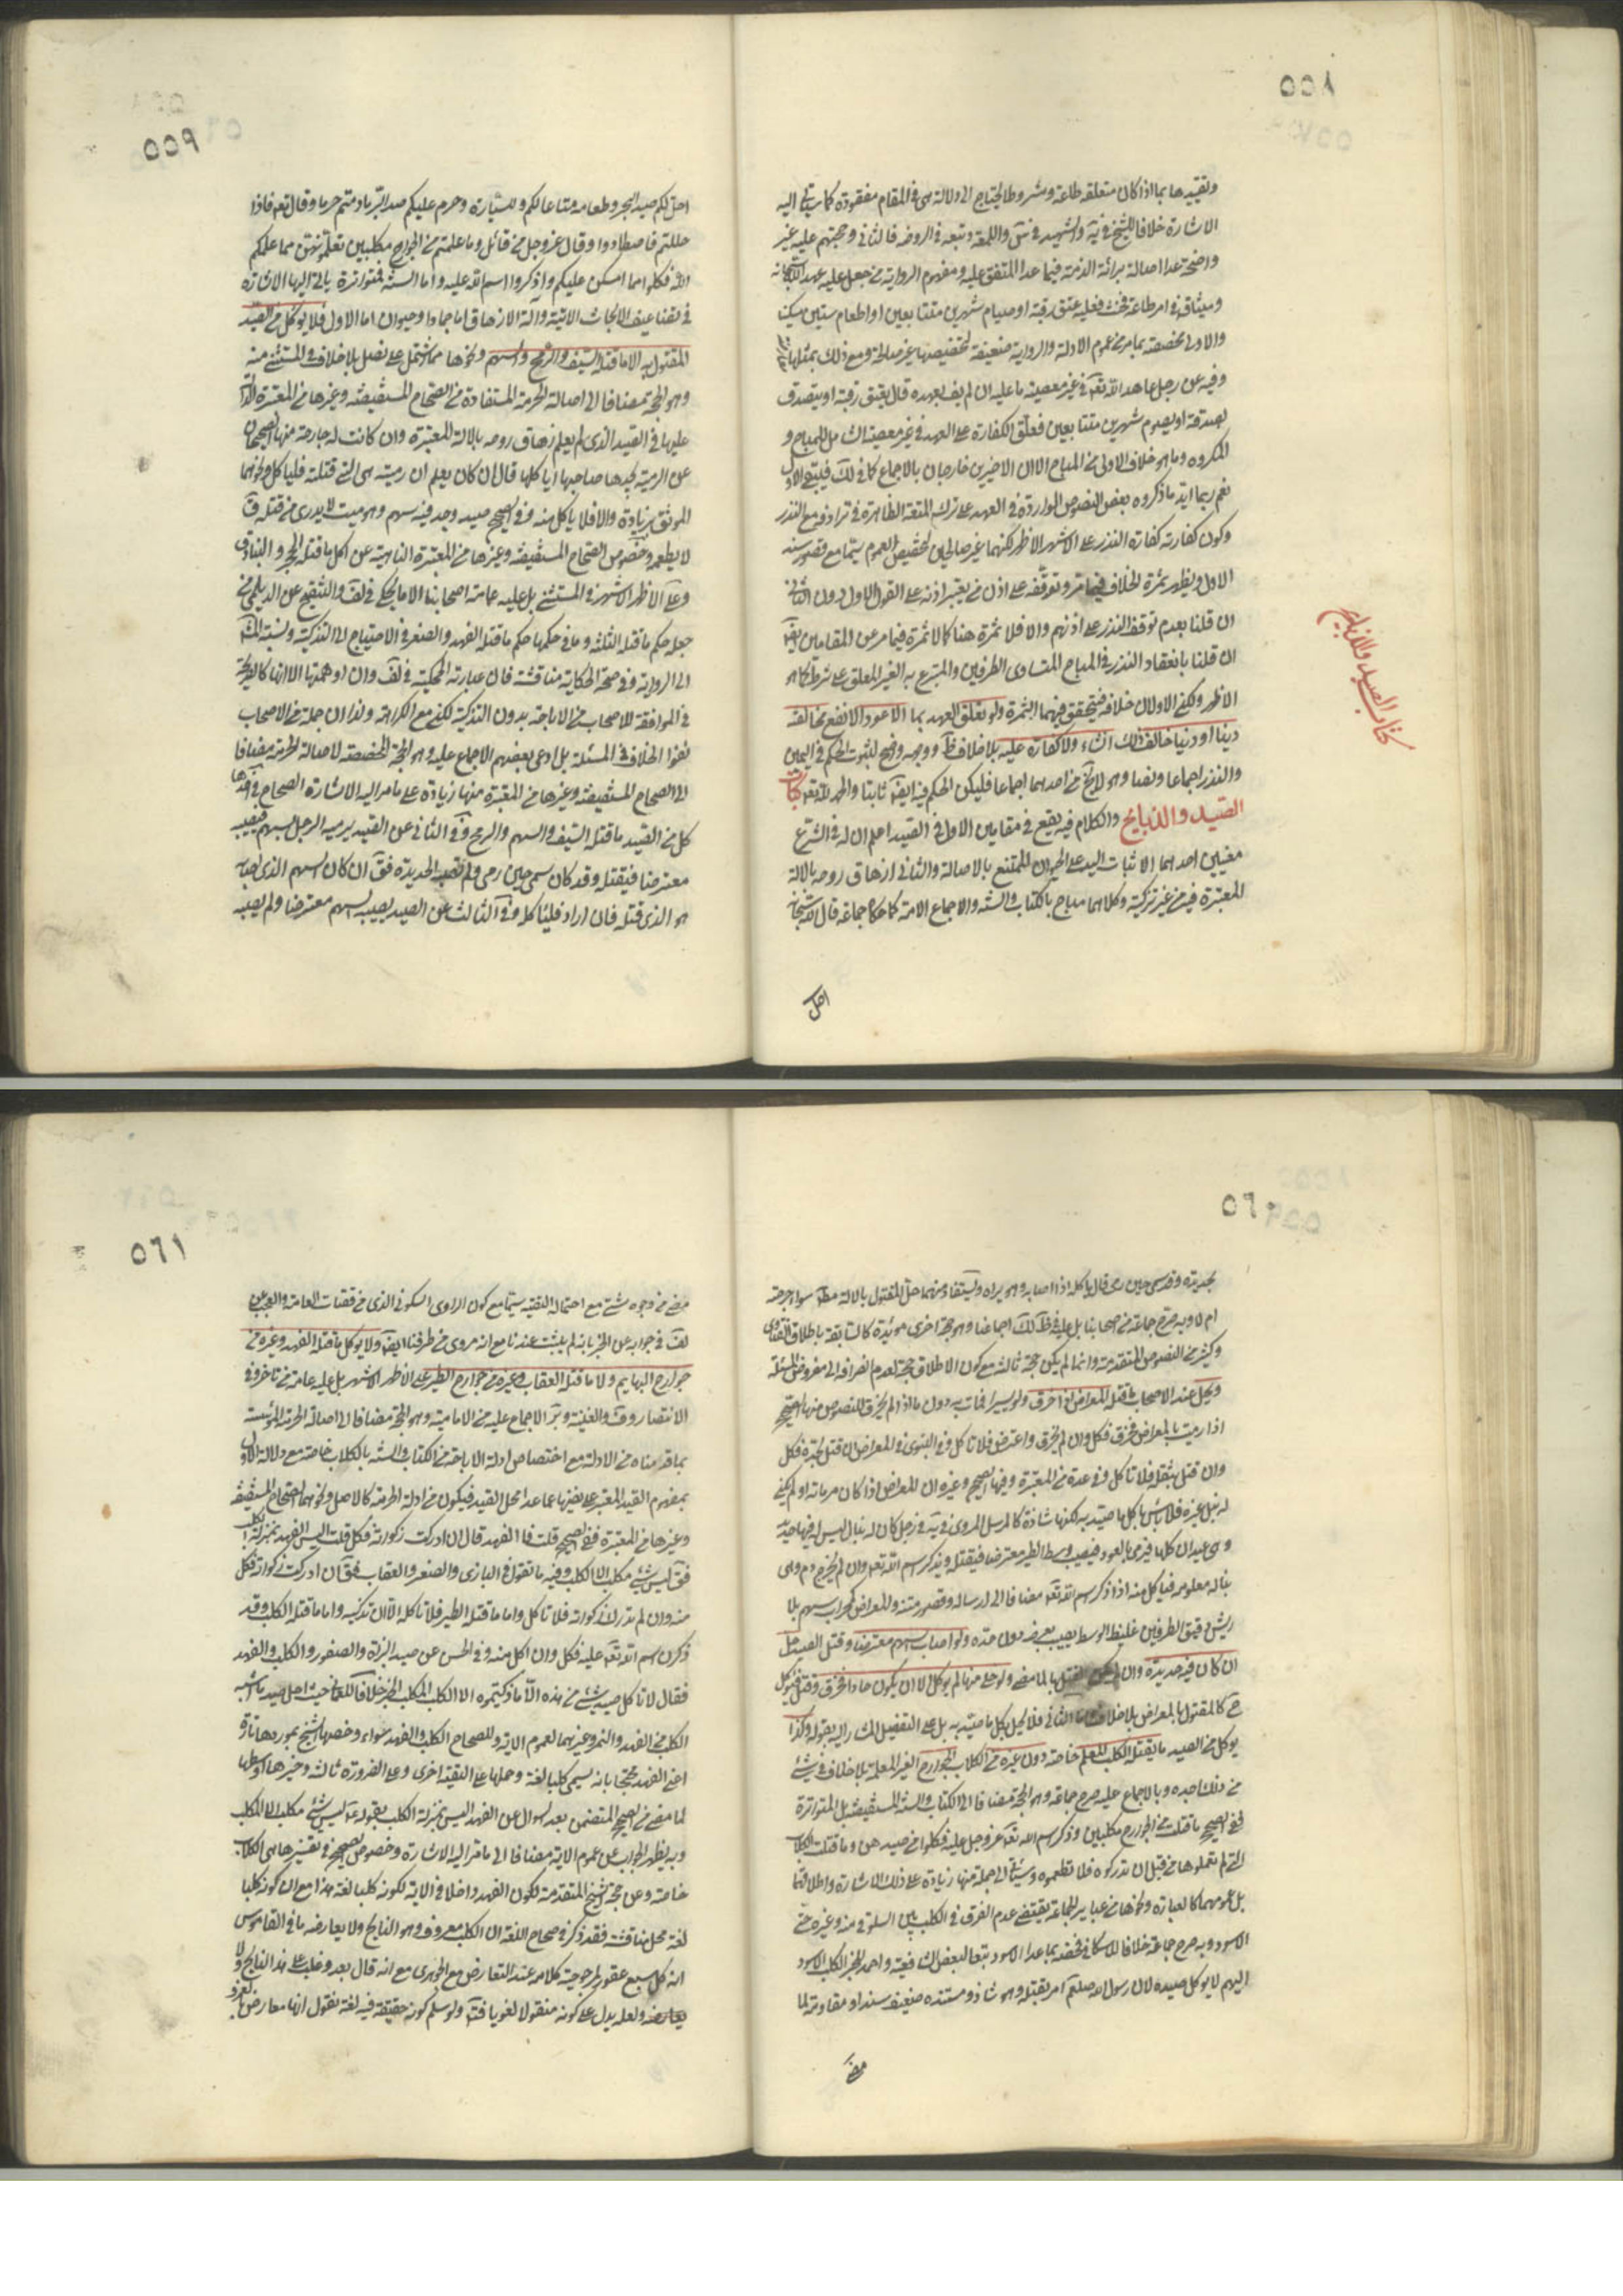 ٥٥٨
وتقييدها بما اذا كان متعلقه طاعة ومشروطا يحتاج الى دلالة هى فى المقام مفقودة كما ياتى اليه
الاشارة خلافا للشيخ فى ية والشهيد فى س واللمعة وتبعه فى الروضة فالثانى وحجتهم عليه غير
واضحة عدا اصالة برائة الذمة فيما عدا المتفق عليه ومفهوم الرواية من جعل عليه عهد الله سبحانه
وميثاقه فى امر طاعة فحنث فعليه عتق رقبة او صيام شهرين متتابعين او اطعام ستين مسكينا
والاولى مخصصة بما مر من عموم الادلة والرواية ضعيفة لتخصيصها غير صالحة ومع ذلك بمثلها
وفيه عن رجل عاهد الله تعه فى غير معصية ما عليه ان لم يف بعهده قال يعتق رقبة او يتصدق
بصدقة او يصوم شهرين متتابعين فعلق الكفارة على العهد فى غير معصية الشامل للمباح و
المكروه وما هو خلاف الاولى من المباح الا ان الاخيرين خارجان بالاجماع كما فى لك فيبقى الاول
نعم ربما ايد ما ذكروه بعض النصوص الواردة فى العهد على ترك المتعة الظاهرة فى ترادفه مع النذر
وكون كفارته كفارة النذر على الاشهر الاظهر لكنهما غير صالحين لتخصيص العموم سيما مع قصور سند
الاول ويظهر ثمرة الخلاف فيما مر وتوقفه على اذن من يعتبر اذنه على القول الاول دون الثانى
ان قلنا بعدم توقف النذر على اذنهم والا فلا ثمرة هنا كما لا ثمرة فيما مر من المقامين ايضا
ان قلنا بانعقاد النذر فى المباح المتساوى الطرفين والمتبرع به الغير المعلق على شرط كما هو
الاظهر ولكن الاولان خلافه فتحقق فيهما الثمرة ولو تعلق العهد بما الاعود والانفع مخالفته
دينا او دنيا خالف ذلك ان شاء ولا كفارة عليه بلا خلاف ظ ووجهه وضح لثبوت الحكم فى اليمين
والنذر اجماعا ونصا وهو لا يخ من احدهما اجماعا فليكن الحكم فيه ايضا ثابتا والحمد لله تعه كتاب
الصيد والذبايح والكلام فيه يقع فى مقامين الاول فى الصيد اعلم ان له فى الشرع
معنيين احدهما الاثبات اليد على الحيوان الممتنع بالاصالة والثانى ازهاق روحه بالالة
المعتبرة فيه من غير تزكية وكلاهما مباح بالكتاب والسنة والاجماع الامة كما حكاه جماعة قال الله سبحانه
احل
كتاب الصيد والذبايح
٥٥٩
احل لكم صيد البحر وطعامه متاعا لكم وللسيارة وحرم عليكم صيد البر ما دمتم حرما وقال تعه فاذا
حللتم فاصطادوا وقال عز وجل من قائل وما علمتم من الجوارح مكلبين تعلمونهن مما علمكم
الله فكلوا مما امسكن عليكم واذكروا اسم الله عليه واما السنة فمتواترة ياتى اليها الاشارة
فى تضاعيف الابحاث الاتية والة الازهاق اما جماد او حيوان اما الاول فلا يوكل من الصيد
المقتول به الا ما قتله السيف والرمح والسهم ونحوها مما اشتمل على نصل بلا خلاف فى المستثنى منه
وهو الحجة مضافا الى اصالة الحرمة المستفادة من الصحاح المستفيضة وغيرها من المعتبرة الدالة
عليها فى الصيد الذى لم يعلم زهاق روحه بالالة المعتبرة وان كانت له جارحة منها الصحيحان
عن الرمية يجدها صاحبها اياكلها قال ان كان يعلم ان رميته هى التى قتلته فلياكل ونحوهما
الموثق بزيادة والا فلا ياكل منه وفى الصحيح صيد وجد فيه سهم وهو ميت لا يدرى من قتله ق
لا يطعمه وخصوص الصحاح المستفيضة وغيرها من المعتبرة الناهية عن اكل ما قتله الحجر والبنادق
وعلى الاظهر الاشهر فى المستثنى بل عليه عامة اصحابنا الا ما يحكى فى لف والتنقيح عن الديلمى من
جعله حكم ما قتله الثلثة وما فى حكمها حكم ما قتله الفهد والصقر فى الاحتياج الى التذكية ونسبته
الى الرواية وفى صحة الحكاية مناقشة فان عبارته المحكية فى لف وان اوهمتها الا انها كالصريحة
فى الموافقة للاصحاب من الاباحة بدون التذكية لكن مع الكراهة ولذا ان جملة من الاصحاب
نفوا الخلاف فى المسئلة بل ادعى بعضهم الاجماع عليه وهو الحجة المخصصة لاصالة الحرمة مضافا
الى الصحاح المستفيضة وغيرها من المعتبرة منها زيادة على ما مر اليه الاشارة الصحاح فى احدها
كل من الصيد ما قتله السيف والسهم والرمح وفى الثانى عن الصيد يرميه الرجل بسهم فيصيبه
معترضا فيقتله وقد كان سمى حين رمى ولم تصبه الحديدة فق ان كان السهم الذى اصابه
هو الذى قتله فان اراد فلياكل وفى الثالث عن الصيد يصيبه السهم معترضا ولم يصبه
٥٦٠
بحديدة وقد سمى حين رمى قال ياكله اذا اصابه وهو يراه ويستفاد منهما حل المقتول بالالة مط سواء جرحته
ام لا وبه صرح جماعة من اصحابنا بل عليه فى ظ لك اجماعنا وهو حجة اخرى مويدة كالسابقة باطلاق الفتاوى
وكثير من النصوص المتقدمة وانما لم يكن حجة ثالثة مع كون الاطلاق حجة لعدم انصرافه الى مفروض المسئلة
ويحل عند الاصحاب ما قتله المعراض اذا خرق ولو يسيرا فمات به دون ما اذا لم يخرق للنصوص منها الصحيح
اذا رميت بالمعراض فخرق فكل وان لم يخرق واعترض فلا تاكل وفى النبوى فى المعراض ان قتل بحدته فكل
وان قتل بثقله فلا تاكل وفى عدة من المعتبرة وفيها الصحيح وغيره ان المعراض اذا كان مرماته او لم يكن
له نبل غيره فلا باس باكل ما صيد به لكنها شاذة كالمرسل المروى فى ية فى رجل كان له نبال ليس فيها حديد
وهى عيدان كلها فيرمى بالعود فيصيب وسط الطير معترضا فيقتله ويذكر اسم الله تعه وان لم يخرج دم وهى
نبالة معلومة فياكل منه اذا ذكر اسم الله تعه مضافا الى ارساله وقصور متنه والمعراض كمحراب سهم بلا
ريش دقيق الطرفين غليظ الوسط يصيب بعرضه دون حده ولو اصاب السهم معترضا وقتل الصيد حل
ان كان فيه حديدة وان لم يكن القتل بها لما مضى ولو خلا منها لم يوكل الا ان يكون حادا فخرق وقتل فيوكل
ح كالمقتول بالمعراض بلا خلاف واما الثانى فلا يحل بكل ما صيد به بل على التفصيل المشار اليه بقوله وكذا
يوكل من الصيد ما يقتله الكلب المعلم خاصة دون غيره من الكلاب الجوارح الغير المعلمة بلا خلاف فى شىء
من ذلك اجده وبالاجماع عليه صرح جماعة وهو الحجة مضافا الى الكتاب والسنة المستفيضة بل المتواترة
ففى الصحيح ما قتلت من الجوارح مكلبين وذكر اسم الله تعه عز وجل عليه فكلوا من صيدهن وما قتلت الكلاب
التى لم تعلموها من قبل ان تدركوه فلا تطعموه وسيأتى الى جملة منها زيادة على ذلك الاشارة واطلاقها
بل عمومهما كالعبارة ونحوها من عباير الجماعة يقتضى عدم الفرق فى الكلب بين السلوقى منه وغيره حتى
الاسود وبه صرح جماعة خلافا للاسكافى فخصه بما عدا الاسود تبعا لبعض الشافعية واحمد للخبر الكلب الاسود
البهيم لا يوكل صيده لان رسول الله صلعم امر بقتله وهو شاذ ومستنده ضعيف سندا ومقاومة لما
مضى
٥٦١
مضى من وجوه شتى مع احتماله التقية سيما مع كون الراوى السكونى الذى من قضات العامة والعجب من
لف فى جوابه عن الخبر بانه لم يثبت عندنا مع انه مروى من طرقنا ايضا ولا يوكل ما قتله الفهد وغيره من
جوارح البهايم ولا ما قتله العقاب وغيره من جوارح الطير على الاظهر الاشهر بل عليه عامة من تاخر وفى
الانتصار وف والغنية وئر الاجماع عليه من الامامية وهو الحجة مضافا الى اصالة الحرمة المؤسسة
بما قدمناه من الادلة مع اختصاص ادلة الاباحة من الكتاب والسنة بالكلاب خاصة مع دلالة الاول
بمفهوم القيد المعتبر على نفيها عما عدا محل القيد فيكون من ادلة الحرمة كالاصل ونحوهما الصحاح المستفيضة
وغيرها من المعتبرة ففى الصحيح قلت فالفهد قال ان ادركت ذكاته فكل قلت اليس الفهد بمنزلة الكلب
فق ليس شىء مكلب الا الكلب وفيه ما تقول فى البازى والصقر والعقاب فق ان ادركت ذكاته فكل
منه وان لم تدرك ذكاته فلا تاكل واما ما قتله الطير فلا تاكله الا ان تذكيه واما ما قتله الكلب وقد
ذكرت اسم الله تعه عليه فكل وان اكل منه وفى الحسن عن صيد البزاة والصقور والكلب والفهد
فقال لا تاكل صيد شىء من هذه الا ما ذكيتموه الا الكلب المكلب الخبر خلافا للعمانى حيث احل صيد ما اشبه
الكلب من الفهد والنمر وغيرهما لعموم الاية وللصحاح الكلب والفهد سواء وخصها الشيخ بموردها تارة
اعنى الفهد محتجا بانه يسمى كلبا لغة وحملها على التقية اخرى وعلى الضرورة ثالثة وخيرها اوسطها
لما مضى من الصحيح المتضمن بعد السوال عن الفهد اليس بمنزلة الكلب بقوله ع ليس شىء مكلب الا الكلب
وبه يظهر الجواب عن عموم الاية مضافا الى ما مر اليه الاشارة وخصوص الصحيح فى تفسيرها هى الكلاب
خاصة وعن حجة الشيخ المتقدمة لكون الفهد داخلا فى الاية لكونه كلبا لغة هذا مع ان كونه كلبا
لغة محل مناقشة فقد ذكر فى صحاح اللغة ان الكلب معروف وهو النابح ولا يعارضه ما فى القاموس
انه كل سبع عقور لمرجوحية كلامه عند التعارض مع الجوهرى مع انه قال بعد وغلب على هذا النابح ولا
يعارضه ولعله يدل على كونه منقولا لغويا فت ولو سلم كونه حقيقة فيه لغة نقول انها معارضة بالعرف